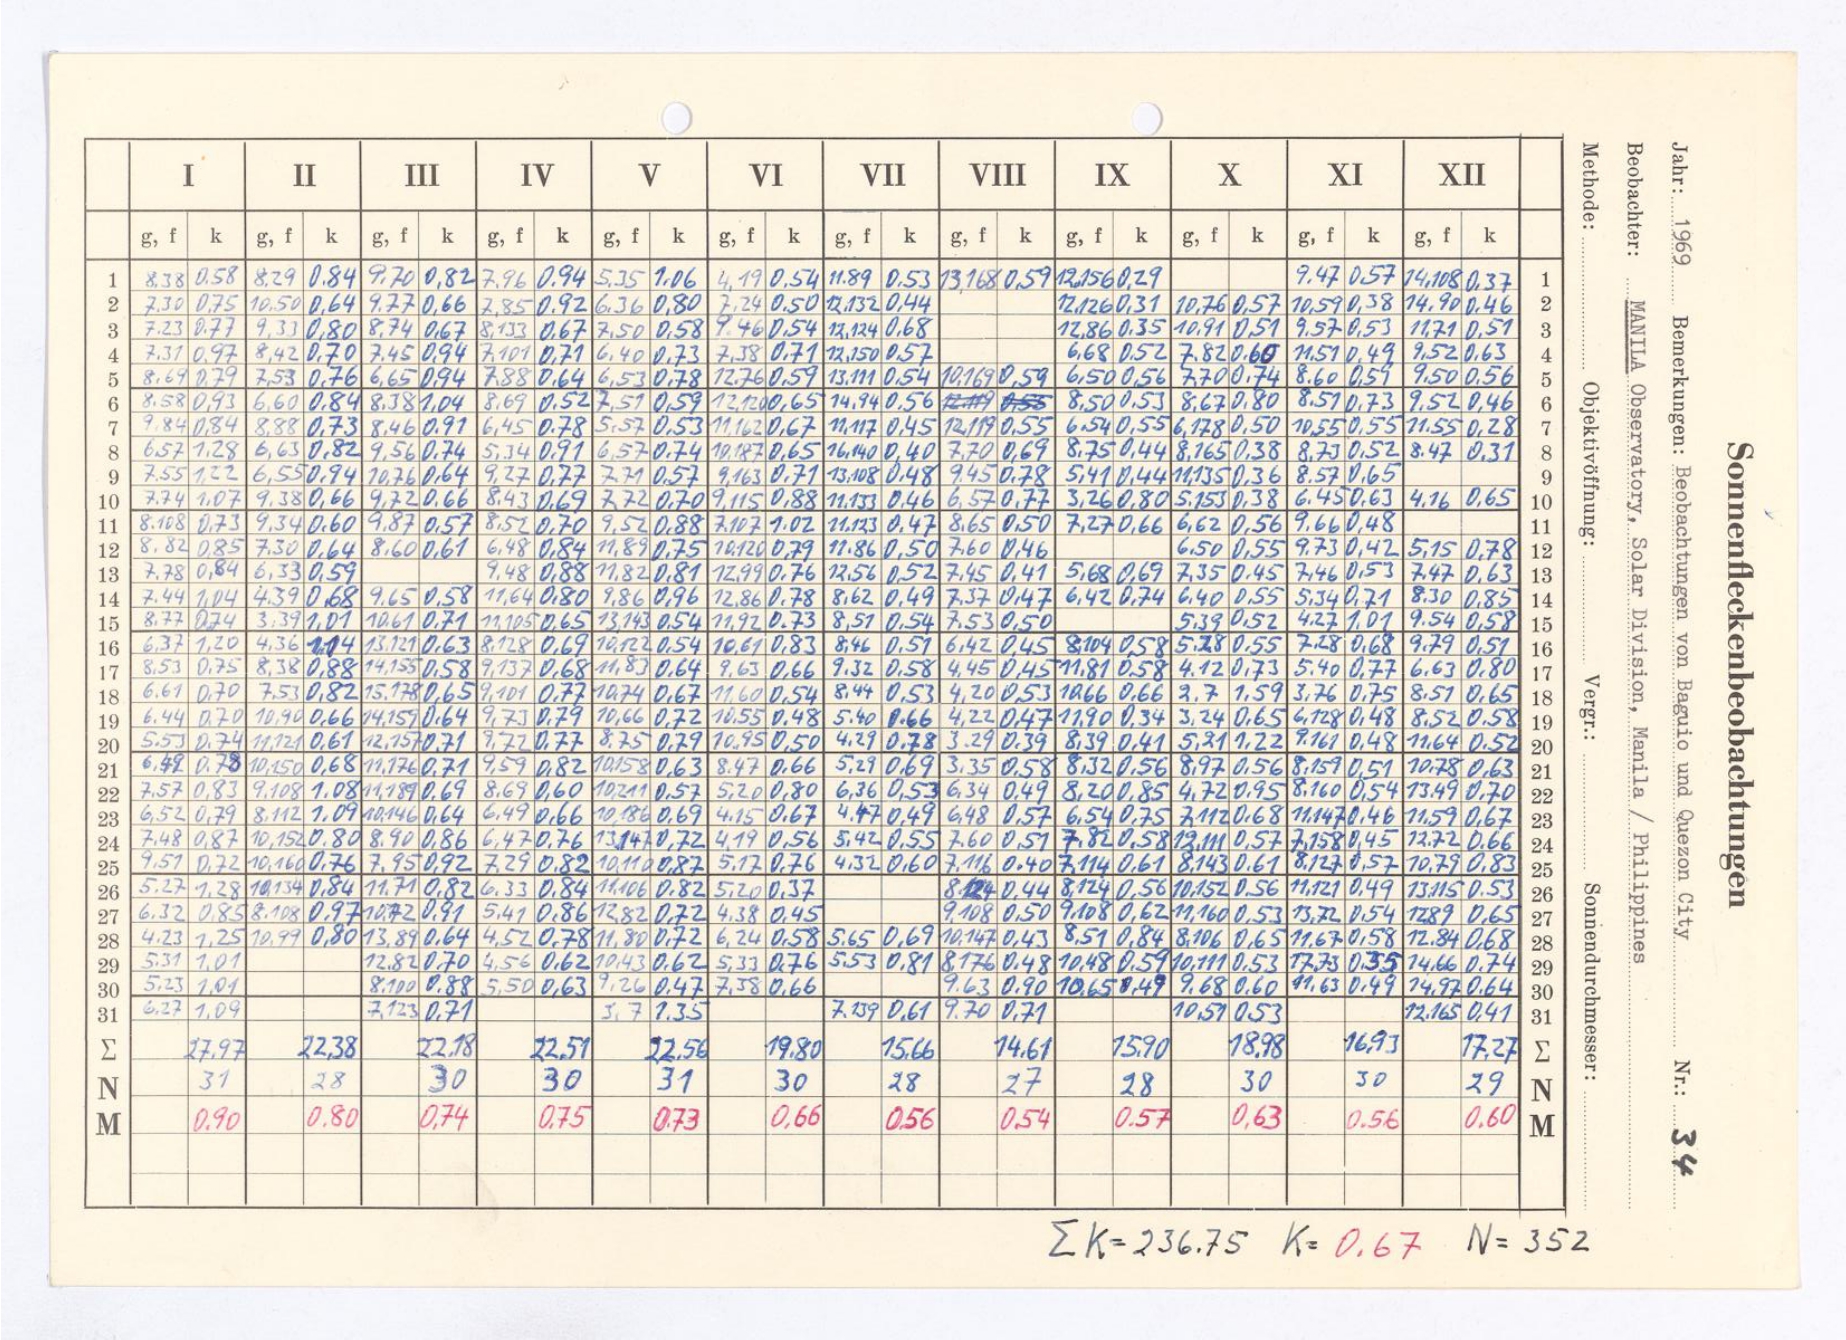 Sonnenfleckenbeobachtungen
Jahr: 1969 Bemerkungen: Beobachtungen von Baguio und Quezon City Nr.: 34
Beobachter: MANILA Observatory, Solar Division, Manila / Philippines
Methode: Objektivöffnung: Vergr.: Sonnendurchmesser:
I II III IV V VI VII VIII IX X XI XII
g, f k g, f k g, f k g, f k g, f k g, f k g, f k g, f k g, f k g, f k g, f k g, f k
1 8.38 0.58 8.29 0.84 9.70 0,82 7.96 0.94 5.35 1.06 4,19 0.54 11.89 0.53 13,168 0,59 12,156 0,29 9.47 0.57 14,108 0.37 1
2 7,30 0,75 10,50 0,64 9.77 0.66 7,85 0.92 6.36 0,80 7,24 0.50 12,132 0,44 12,126 0,31 10,76 0,57 10,59 0,38 14,90 0.46 2
3 7.23 0.77 9,33 0,80 8,74 0,67 8,133 0,67 7,50 0,58 9.46 0,54 12,124 0.68 12,86 0.35 10,91 0,51 9.57 0,53 11,71 0,51 3
4 7.31 0,97 8,42 0,70 7.45 0,94 7,101 0,71 6.40 0,73 7,38 0,71 12,150 0,57 6,68 0.52 7.82 0.60 11.51 0,49 9,52 0,63 4
5 8.69 0,79 7,53 0,76 6,65 0,94 7.88 0,64 6,53 0,78 12.76 0,59 13,111 0,54 10,169 0,59 6,50 0,56 7,70 0,74 8.60 0,59 9.50 0,56 5
6 8.58 0,93 6,60 0,84 8.38 1,04 8,69 0.52 7,51 0,59 12,120 0,65 14,94 0,56 8,50 0.53 8,67 0,80 8.51 0,73 9,52 0,46 6
7 9.84 0,84 8,88 0,73 8,46 0,91 6,45 0.78 5,57 0,53 11,162 0,67 11,117 0,45 12,119 0,55 6.54 0,55 6,178 0,50 10,55 0,55 11.55 0,28 7
8 6,57 1,28 6,63 0,82 9,56 0.74 5,34 0,91 6,57 0.74 10,187 0,65 16,140 0,40 7,70 0,69 8,75 0,44 8,165 0,38 8,73 0,52 8.47 0,31 8
9 7.55 1,22 6,55 0,94 10,76 0,64 9,27 0,77 7,71 0,57 9,163 0,71 13,108 0,48 9.45 0,78 5,41 0,44 11,135 0,36 8.57 0,65 9
10 7.74 1,07 9,38 0,66 9,72 0,66 8,43 0,69 7,72 0,70 9,115 0,88 11,133 0,46 6,57 0,77 3,26 0,80 5,153 0,38 6.45 0,63 4.16 0,65 10
11 8.108 0,73 9,34 0,60 9,87 0,57 8,52 0,70 9,52 0,88 7,107 1.02 11,123 0,47 8,65 0,50 7,27 0,66 6,62 0,56 9.66 0,48 11
12 8.82 0,85 7,30 0,64 8,60 0,61 6,48 0,84 11,89 0,75 10,120 0,79 11.86 0,50 7.60 0,46 6.50 0,55 9.73 0,42 5,15 0,78 12
13 7,78 0,84 6,33 0,59 9,48 0,88 11,82 0,81 12,99 0,76 12,56 0,52 7,45 0,41 5,68 0,69 7,35 0.45 7,46 0,53 7.47 0,63 13
14 7.44 1,04 4,39 0,68 9,65 0,58 11,64 0.80 9,86 0,96 12,86 0,78 8,62 0,49 7,37 0,47 6,42 0,74 6,40 0,55 5,34 0,71 8.30 0,85 14
15 8,77 0,74 3,39 1,01 10,61 0,71 11,105 0,65 13,143 0,54 11,92 0,73 8,51 0,54 7.53 0,50 5,39 0,52 4.27 1,01 9.54 0,58 15
16 6,37 1,20 4,36 1,14 13,121 0,63 8,128 0,69 10,122 0,54 10,61 0,83 8,46 0,51 6,42 0,45 8,104 0,58 5,28 0,55 7.28 0,68 9,79 0,51 16
17 8.53 0,75 8,38 0,88 14,155 0,58 9,137 0,68 11,83 0,64 9,63 0,66 9,32 0,58 4,45 0,45 11,81 0,58 4.12 0,73 5.40 0,77 6.63 0,80 17
18 6.61 0,70 7.53 0,82 15,178 0,65 9,101 0,77 10,74 0,67 11.60 0,54 8,44 0,53 4,20 0,53 10,66 0,66 2.7 1.59 3,76 0,75 8.51 0,65 18
19 6.44 0,70 10,90 0,66 14,159 0,64 9,73 0,79 10,66 0,72 10,55 0,48 5.40 0.66 4,22 0,47 11,90 0,34 3,24 0,65 6,128 0,48 8,52 0,58 19
20 5.53 0,74 11,121 0,61 12,157 0,71 9,72 0,77 8,75 0,79 10,95 0,50 4.29 0,78 3.29 0.39 8,39 0,41 5,21 1,22 9,161 0,48 11,64 0,52 20
21 6,42 0.78 10,150 0,68 11,176 0,71 9,59 0,82 10,158 0,63 8.47 0,66 5,29 0,69 3,35 0,58 8,32 0,56 8,97 0,56 8,159 0,51 10,78 0,63 21
22 7.57 0,83 9,108 1.08 11,189 0,69 8.69 0,60 10,211 0,57 5,20 0,80 6,36 0,53 6,34 0,49 8,20 0,85 4,72 0,95 8,160 0,54 13,49 0,70 22
23 6,52 0,79 8,112 1.09 10,146 0,64 6,49 0,66 10,186 0,69 4,15 0,67 4,47 0,49 6,48 0,57 6,54 0,75 7,112 0,68 11,147 0,46 11,59 0,67 23
24 7,48 0,87 10,152 0.80 8,90 0,86 6,47 0,76 13,147 0,72 4,19 0,56 5,42 0,55 7.60 0,51 7,82 0,58 12,111 0,57 7,158 0,45 12.72 0,66 24
25 9,51 0,72 10,160 0,76 7,95 0,92 7.29 0,82 10,110 0,87 5,17 0,76 4,32 0,60 7,116 0.40 7,114 0,61 8,143 0,61 8,127 0,57 10,79 0,83 25
26 5.27 1,28 10,134 0,84 11.71 0,82 6.33 0,84 11,106 0.82 5,20 0,37 8,124 0,44 8,124 0,56 10,152 0.56 11,121 0,49 13,115 0.53 26
27 6.32 0,85 8,108 0,97 10,72 0,91 5,41 0,86 12,82 0,72 4.38 0,45 9,108 0,50 9,108 0,62 11,160 0,53 13,72 0,54 12,89 0,65 27
28 4.23 1,25 10,99 0,80 13,89 0,64 4,52 0,78 11,80 0,72 6,24 0,58 5.65 0,69 10,147 0,43 8.51 0,84 8,106 0,65 11,67 0,58 12,84 0,68 28
29 5.31 1,01 12,82 0,70 4,56 0,62 10,43 0,62 5,33 0,76 5,53 0,81 8,176 0,48 10,48 0,59 10,111 0,53 17,73 0.35 14,66 0,74 29
30 5.23 1,01 8,100 0,88 5,50 0,63 9,26 0,47 7,38 0,66 9.63 0,90 10,65 0,49 9,68 0,60 11,63 0,49 14,97 0,64 30
31 6,27 1,09 7,123 0,71 3,7 1.35 7,139 0,61 9.70 0,71 10,51 0,53 12,165 0,41 31
Σ 27,97 22,38 22,18 22,51 22,56 19,80 15,66 14,61 15,90 18,98 16,93 17,27 Σ
N 31 28 30 30 31 30 28 27 28 30 30 29 N
M 0.90 0.80 0,74 0,75 0.73 0,66 0,56 0,54 0.57 0,63 0.56 0.60 M
ΣK= 236.75 K= 0.67 N= 352